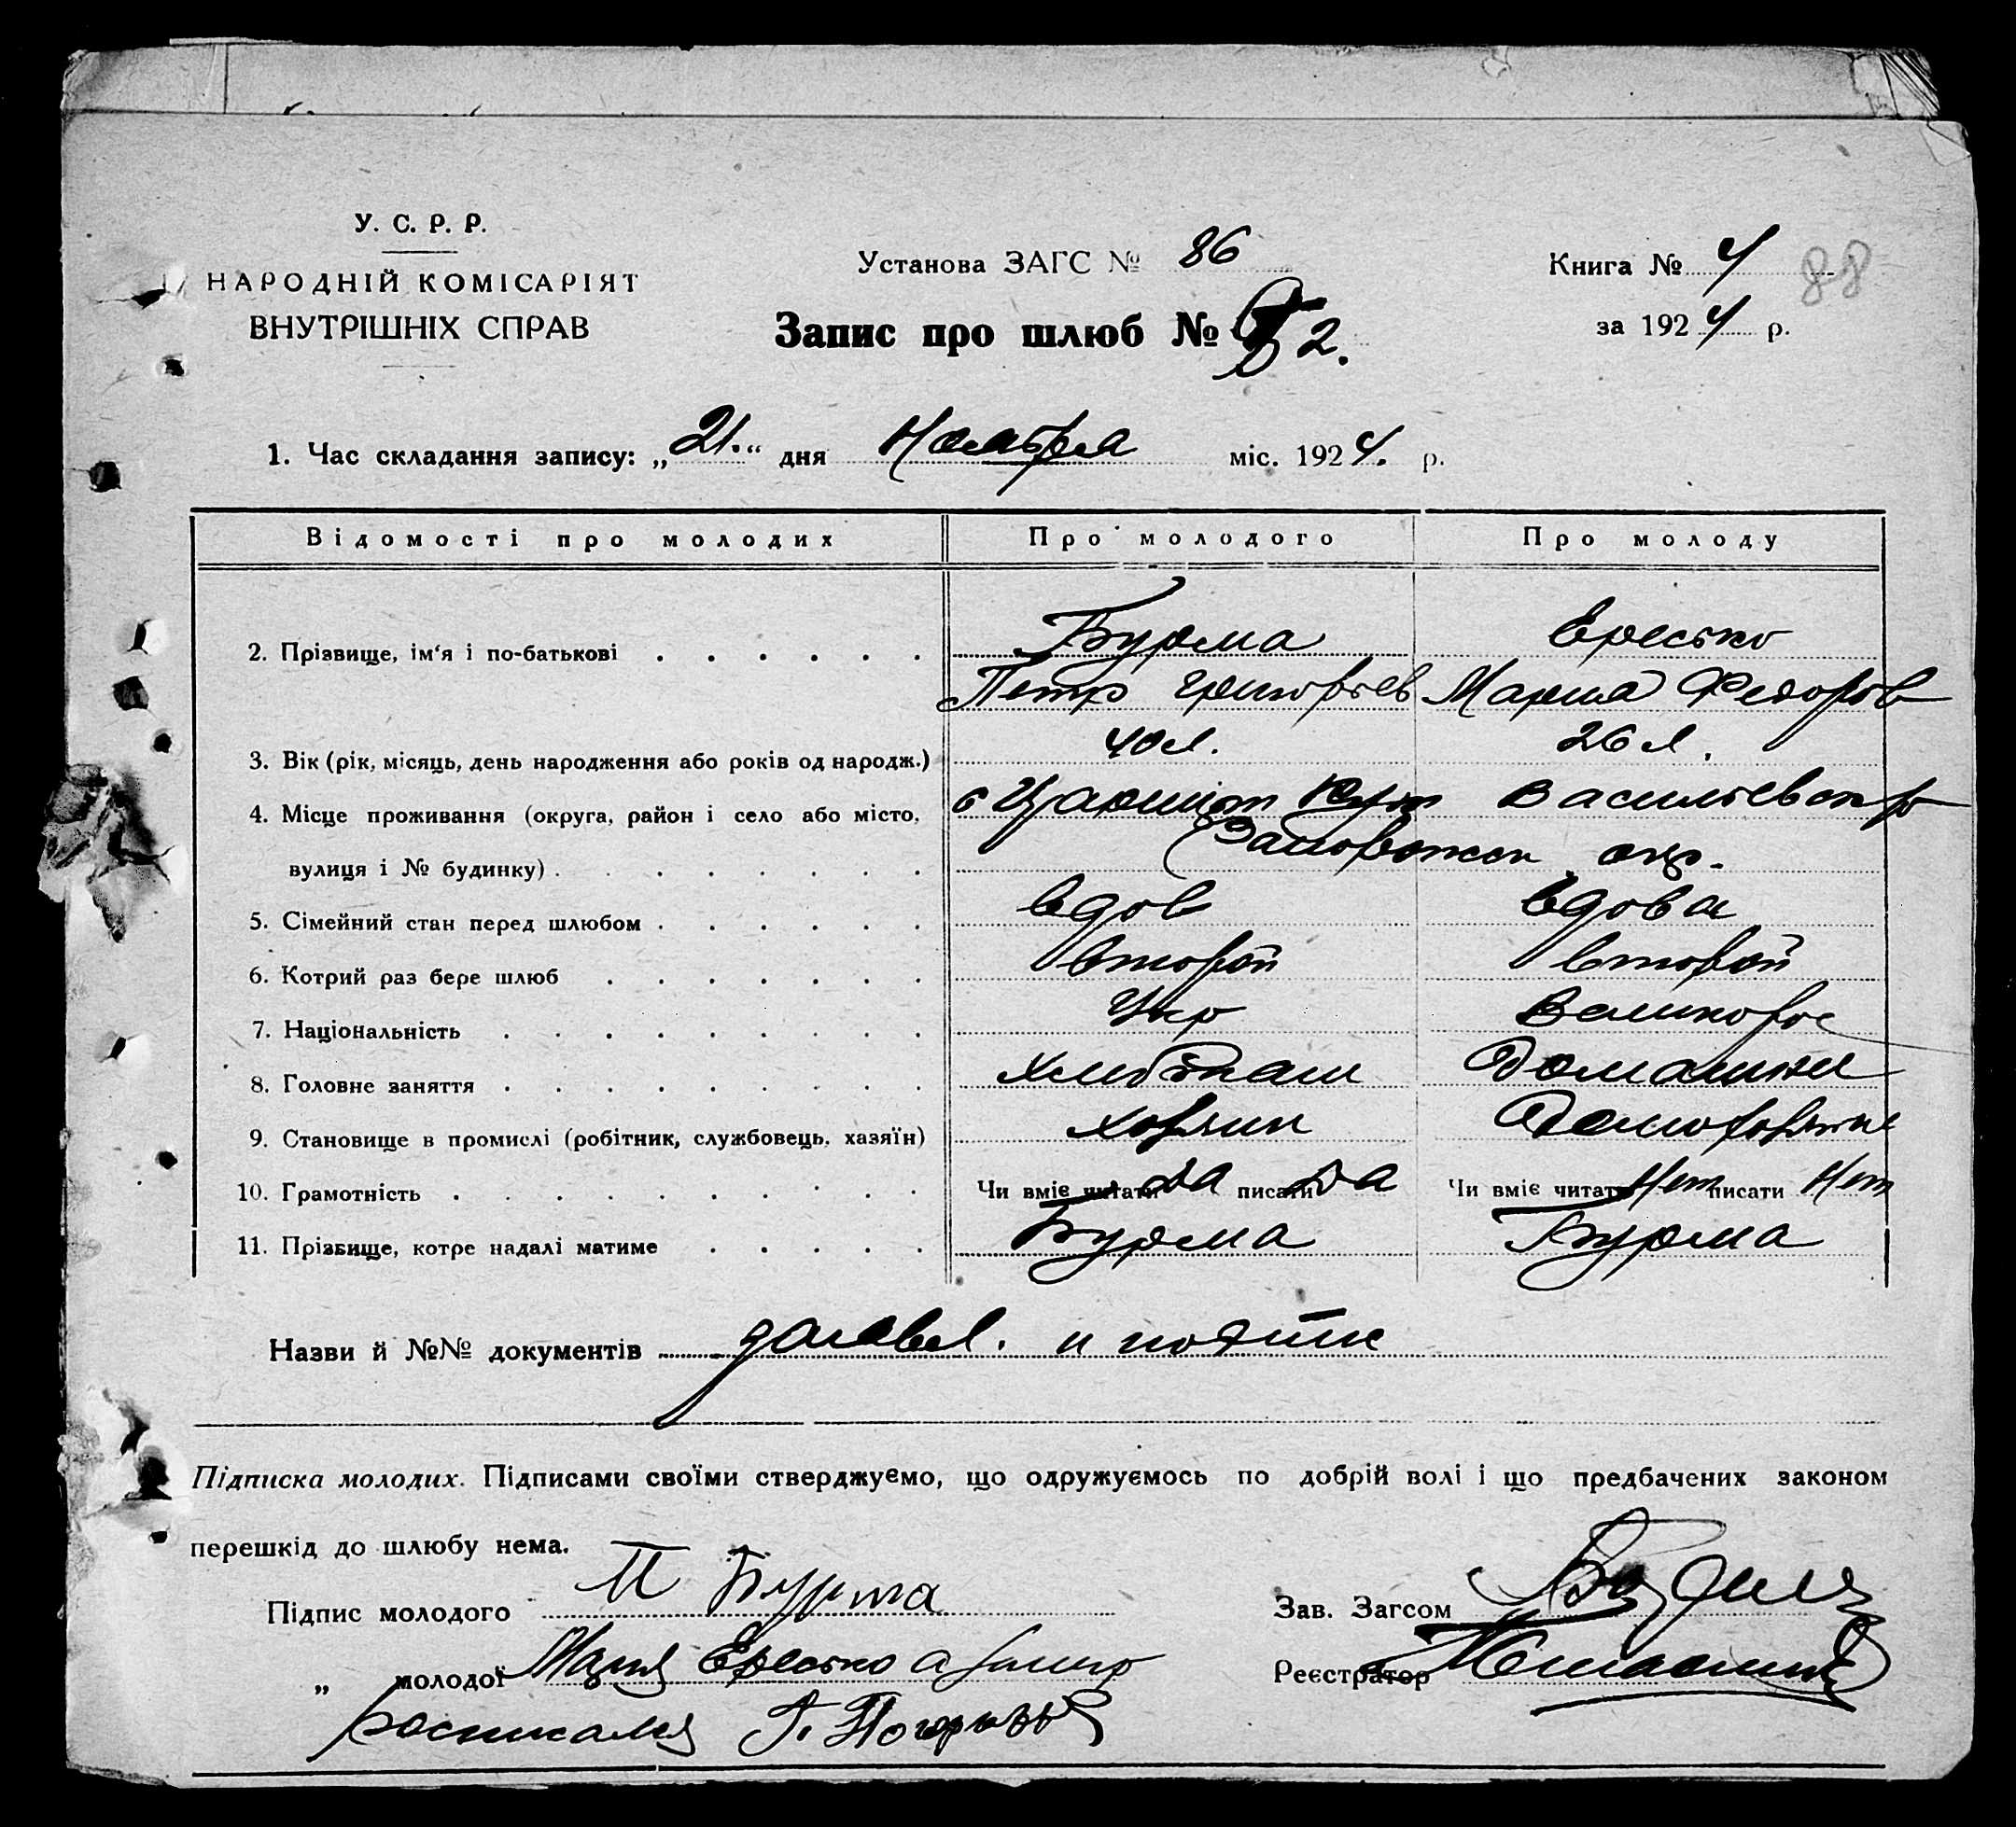 У. С. Р. Р.
НАРОДНІЙ КОМІСАРІЯТ
ВНУТРІШНІХ СПРАВ
Установа ЗАГС № 86
Книга № 4
88
Запис про шлюб № 2.
за 1924 р.
1. Час складання запису: „21.“ дня Ноября міс. 1924. р.
Відомості про молодих Про молодого Про молоду
2. Прізвище, ім'я і по-батькові Бурма Ересько
Петр Григорьев Мария Федоров
3. Вік (рік, місяць, день народження або років од народж.) 40 л. 26 л.
4. Місце проживання (округа, район і село або місто, с Царицын Кут Васильевск р
вулиця і № будинку) Запорожск окр.
5. Сімейний стан перед шлюбом вдов вдова
6. Котрий раз бере шлюб второй второй
7. Національність Укр Великорос
8. Головне заняття хлибопаш Домашняя
9. Становище в промислі (робітник, службовець, хазяїн) хозяин
10. Грамотність Чи вміє читати Да писати Да Чи вміє читати Нет писати Нет
11. Прізвище, котре надалі матиме Бурма Бурма
Назви й №№ документів заявл. и
Підписка молодих. Підписами своїми стверджуємо, що одружуємось по добрій волі і що предбачених законом
перешкід до шлюбу нема.
Підпис молодого П Бурма Зав. Загсом
„ молодої Мария Ересько а за нее Реєстратор
росписался